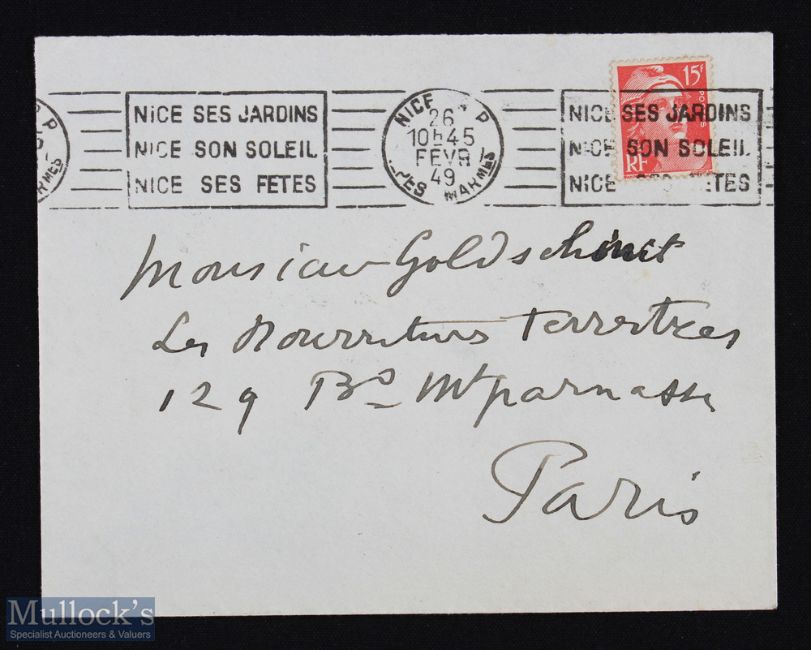 NICE SES JARDINS
NICE SON SOLEIL
NICE SES FETES
NICE R P
26
10H45
FEVR
49
ALPES MARMES
NICE SES JARDINS
NICE SON SOLEIL
NICE SES FETES
15F
POSTES
RF
Monsieur Goldschmit
Les Nourritures Terrestres
129 Bd Mtparnasse
Paris
Mullock's
Specialist Auctioneers & Valuers